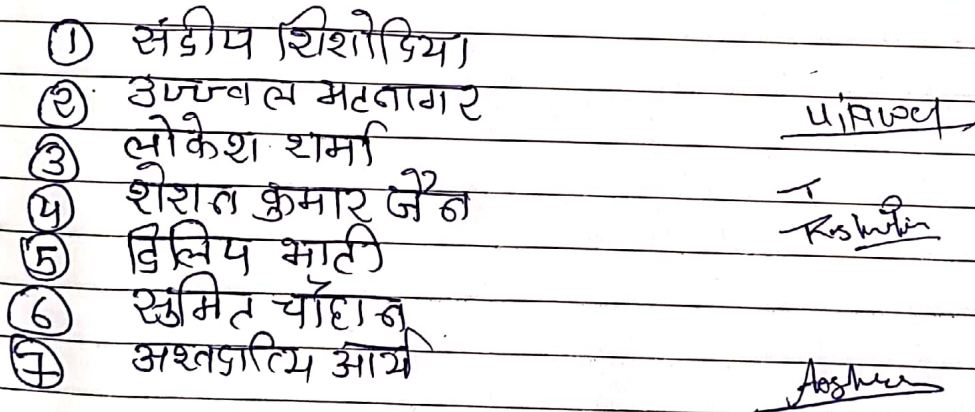 ① संदीप शिशोदिया
② उज्ज्वल भटनागर
③ लोकेश शर्मा
④ रोशन कुमार जैन
⑤ दिलिप भाटी
⑥ सुमित चौहान
⑦ आर्य